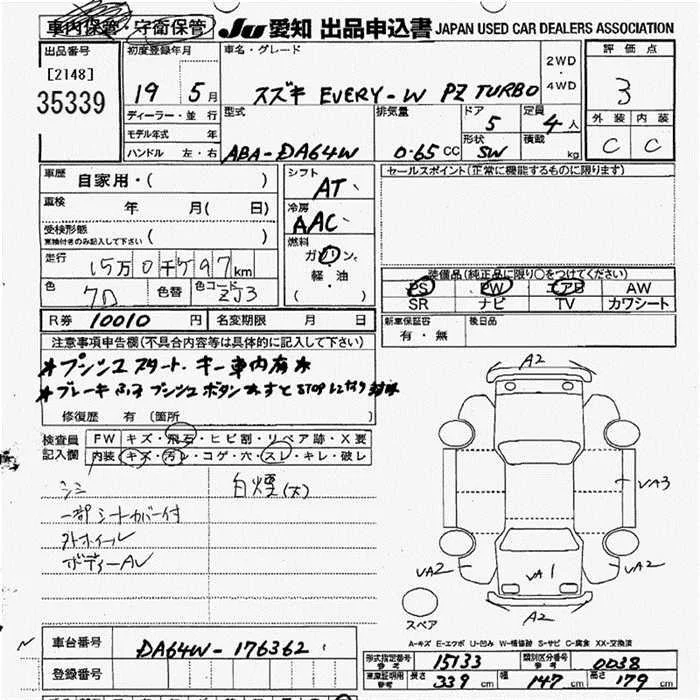 車内保管・守衛保管
JU 愛知 出品申込書 JAPAN USED CAR DEALERS ASSOCIATION
出品番号
[2148]
35339
初度登録年月
19 5月
車名・グレード
スズキ EVERY-W PZ TURBO
2WD
・
4WD
評価点
3
外装 内装
C C
ディーラー・並行
モデル年式 年
ハンドル 左・右
型式
ABA-DA64W
排気量
0.65 CC
ドア
5
形状
SW
定員
4人
積載
kg
車歴
自家用・( )
車検
年 月( 日)
受検形態
車検付きのみ記入して下さい ( )
走行
15万0千797km
色
色替
色コード
ZJ3
シフト
AT
冷房
AAC
燃料
ガソリン
軽・油
( )
セールスポイント(正常に機能するものに限ります)
装備品(純正品に限り○をつけてください)
PS PW エアB AW
SR ナビ TV カワシート
新車保証書
有・無
後日品
R券 10010 円
名変期限 月 日
注意事項申告欄(不具合内容等は具体的に記入して下さい)
*プッシュスタート・キー車内有*
修復歴 有(箇所 )
検査員
記入欄
FW キズ・飛石・ヒビ割・リペア跡・X要
内装 キズ・汚レ・コゲ・穴・スレ・キレ・破レ
シミ
一部シートカバー付
外ホイール
白煙(大)
A2
VA3
VA2
VA1
VA2
A2
スペア
A-キズ E-エクボ U-凹み W-補修跡 S-サビ C-腐食 XX-交換済
車台番号
DA64W-176362
登録番号
形式指定番号
参考
15133
類別区分番号
参考
0038
車庫証明用
参考
長さ 339 cm
幅 147 cm
高さ 179 cm